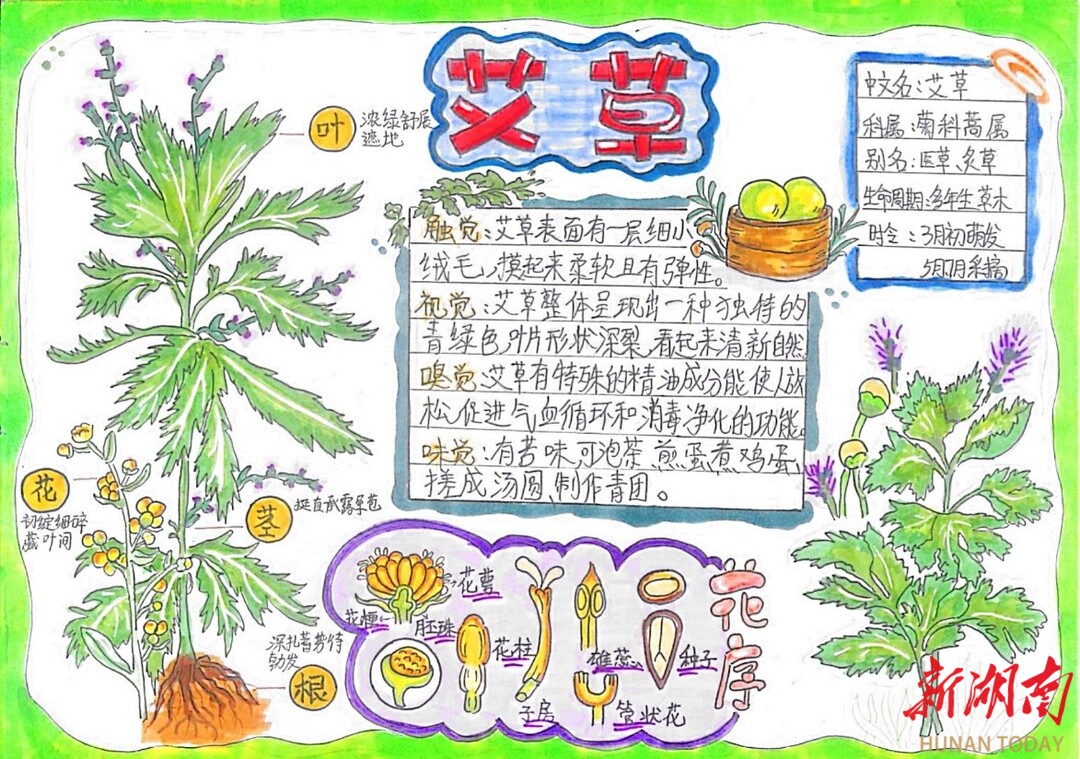 艾草
叶
浓绿舒展
遮地
中文名:艾草
科属:菊科蒿属
别名:医草、灸草
生命周期:多年生草木
时令:3月初萌发
5月7月采摘
触觉:艾草表面有一层细小
绒毛,摸起来柔软且有弹性。
视觉:艾草整体呈现出一种独特的
青绿色,叶片形状深裂,看起来清新自然
嗅觉:艾草有特殊的精油成分能使人放
松,促进气血循环和消毒净化的功能。
味觉:有苦味,可泡茶煎蛋煮鸡蛋,
搓成汤圆,制作青团。
花
初绽细碎
藏叶间
茎
挺直承露
根
深扎蓄势待
勃发
花序
花萼
花梗
胚珠
花柱
子房
雄蕊
管状花
种子
新湖南
HUNAN TODAY